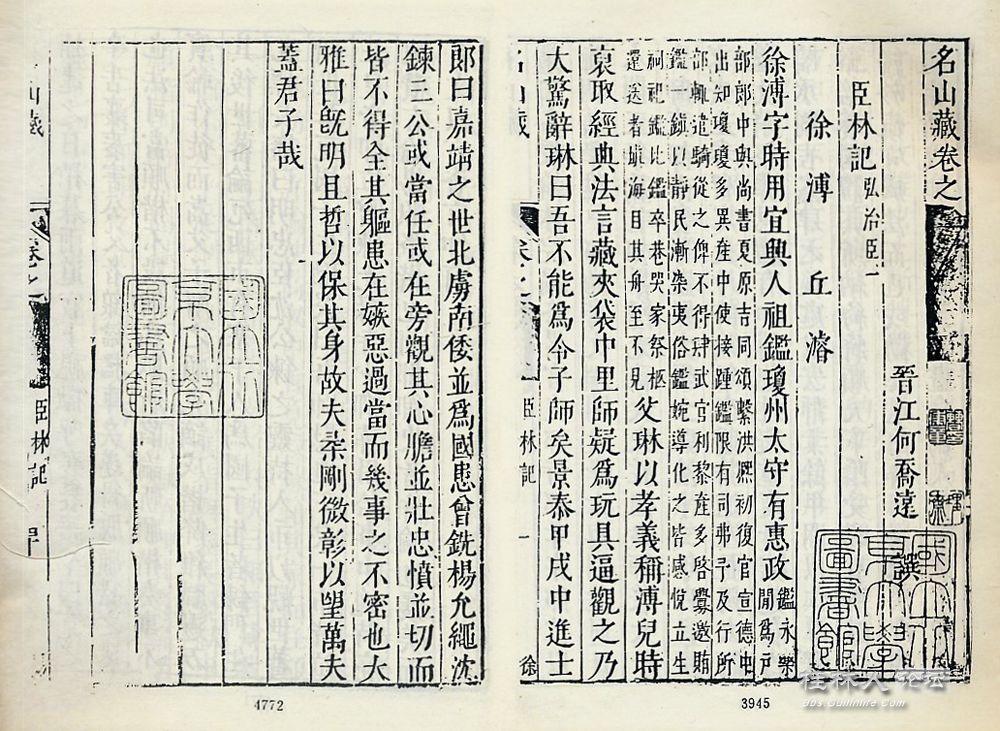 名山藏卷之
晉江何喬遠 譔
臣林記 弘治臣一
徐溥 丘濬
徐溥字時用宜興人祖鑑瓊州太守有惠政 鑑永樂
間為戶
部郎中與尚書夏原吉同頌繫洪熙初復官宣德中
出知瓊瓊多異產中使接踵鑑限有司弗予及行所
部輒遣騎從之俾不得肆武官利黎產多啓釁邀賄
鑑一鎮以靜民漸染夷俗鑑婉導化之皆感悅立生
祠祀鑑比鑑卒巷哭家祭柩
還送者雖海目其舟至不見
父琳以孝義稱溥兒時
裒取經典法言藏夾袋中里師疑為玩具逼觀之乃
大驚辭琳曰吾不能為令子師矣景泰甲戌中進士
名山藏 卷之 臣林記 一 徐
郞曰嘉靖之世北虜南倭並爲國患曾銑楊允繩沈
鍊三公或當任或在旁觀其心膽並壯忠憤並切而
皆不得全其軀患在嫉惡過當而幾事之不密也大
雅曰旣明且哲以保其身故夫柔剛微彰以望萬夫
蓋君子哉
山藏 卷之 臣林記
國立北京大學圖書館
國立北京大學圖書館
4772
3945
桂林人论坛
bbs.Guilinlife.com